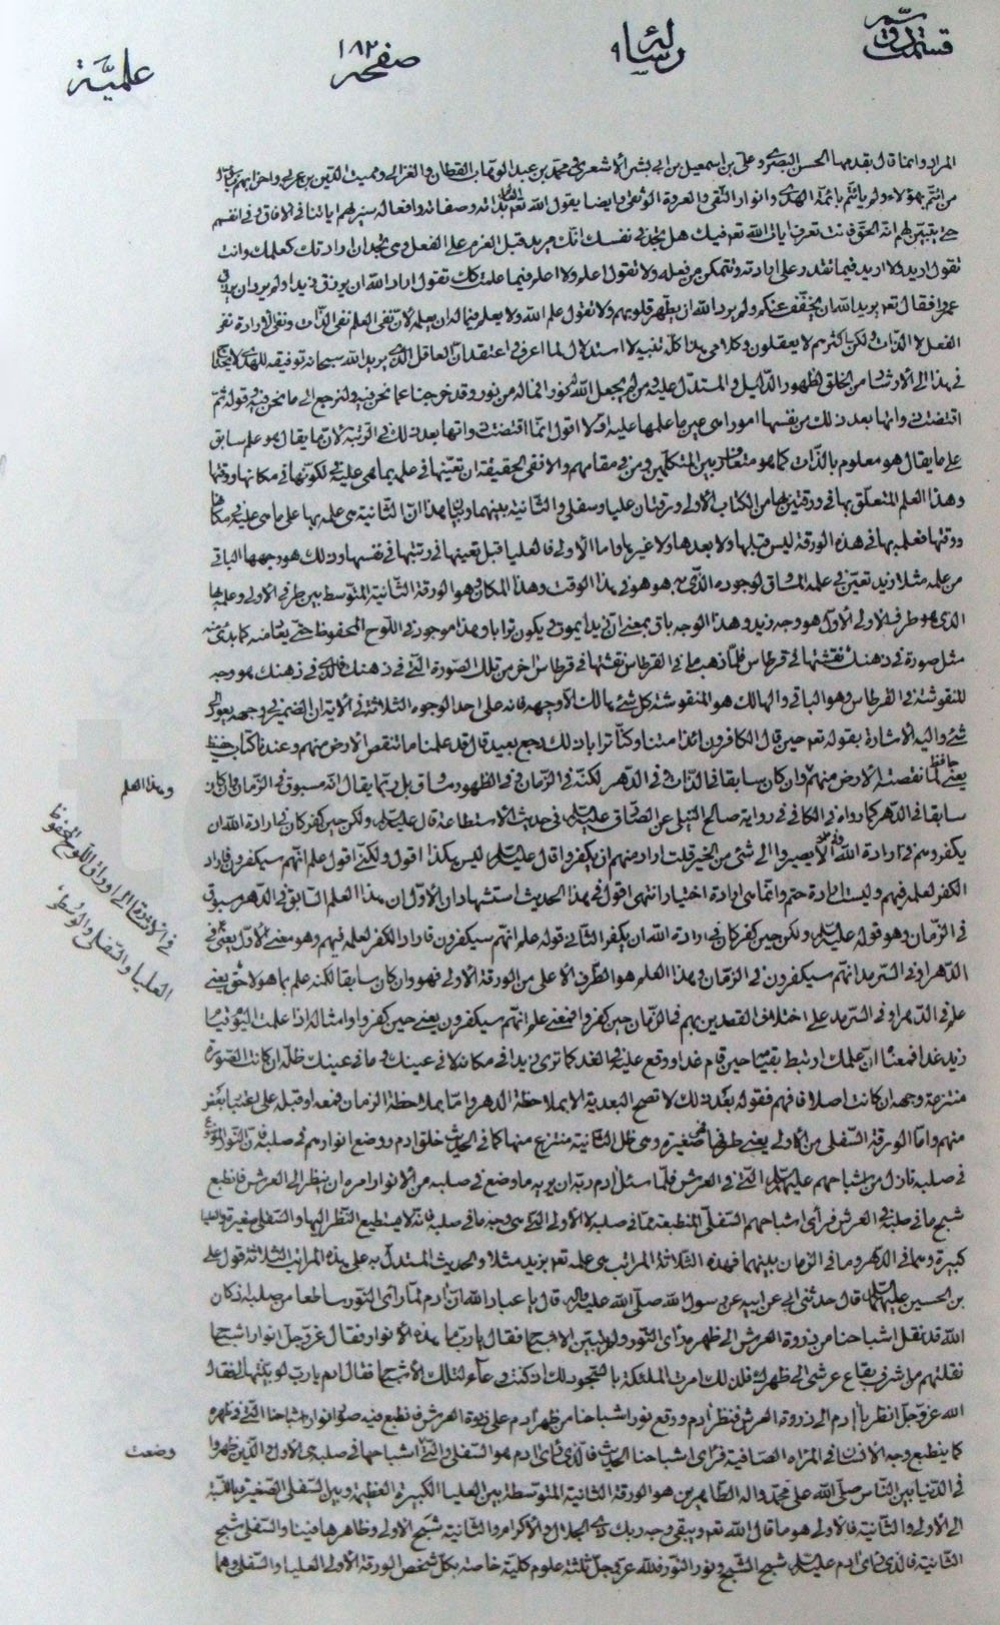 قسمت دوم
رسالة
صفحه ١٨٢
علميّة
المراد وانما قال بقدمها الحسن البصري وعلي بن اسمعيل بن ابي بشر الاشعري ومحمد بن عبد الوهاب القطان والغزالي ومميت الدين بن عربي واحزابهم
من ائتم بهؤلاء ولم يأتم بائمة الهدى وانوار التقى والعروة الوثقى وايضا يقول الله تعالى في ذاته وصفاته وافعاله سنريهم اياتنا في الافاق وفي انفسهم
حتى يتبين لهم انه الحق فانت تعرف ايات الله تعه فيك هل تجد في نفسك انك مريد قبل العزم على الفعل وهل تجد ان ارادتك كعلمك وانت
تقول اريد ولا اريد فيما تقدر على ارادته وتتمكن من فعله ولا تقول اعلم ولا اعلم فيما علمت كك تقول اراد الله ان يرزق زيدا ولم يرد ان يرزق
عمرا فقال تعه يريد الله ان يخفف عنكم ولم يرد الله ان يطهر قلوبهم ولا تقول علم الله ولا يعلم فيما له ان يعلم لان نفي العلم نفي الذات ونفي الارادة نفي
الفعل لا الذات ولكن اكثرهم لا يعقلون وكلامي هذا كله تنبيه لا استدلال لما اعرف في اعتقد ان العاقل الذي يريد الله سبحانه توفيقه للهدى لا يحتاج
في هذا الى الارشاد من الخلق لظهور الدليل والمستدل عليه ومن لم يجعل الله له نورا فما له من نور وقد خرجنا عما نحن فيه ولنرجع الى ما نحن فيه قوله ثم
اقتضت ذواتها بعد ذلك من نفسها امورا هي عين ما علمها عليه اولا اقول انما اقتضت ذواتها بعد ذلك في الرتبة لان ما يقال هو علم سابق
على ما يقال هو معلوم بالذات كما هو متعارف بين المتكلمين ومن في مقامهم والا ففي الحقيقة ان تعينها في علمه بما هي عليه في كونها في مكانها ووقتها
وهذا العلم المتعلق بها في ورقتين هما من الكتاب الاولى ورقتان عليا وسفلى والثانية بينهما وبيان هذا ان الثانية هي علمه بها على ما هي عليه في مكانها
ووقتها فعلمه بها في هذه الورقة ليس قبلها ولا بعدها ولا غيرها واما الاولى فالعليا قبل تعينها في رتبتها في نفسها وذلك هو وجهها الباقي
من علمه مثلا زيد تعين في علمه المساوق لوجوده الذي به هو هو في هذا الوقت وهذا المكان وهو الورقة الثانية المتوسط بين طرفي الاولى وعلمه بها
الذي هو طرف الاولى الاول هو وجه زيد وهذا الوجه باق بمعنى ان زيدا يموت ويكون ترابا وهذا موجود في اللوح المحفوظ حتى يعاد منه كما بدئ منه
مثل صورة في ذهنك نقشتها في قرطاس فلما ذهب ما في القرطاس نقشتها في قرطاس اخر من تلك الصورة التي في ذهنك فالذي في ذهنك هو وجه
للنقوش في القرطاس وهو الباقي والهالك هو المنقوشة كل شئ هالك الا وجهه فانه على احد الوجوه الثلاثة في الاية ان الضمير في وجهه يعود الى
شئ واليه الاشارة بقوله تعه حين قال الكافرون ائذا متنا وكنا ترابا ذلك رجع بعيد قال قد علمنا ما تنقص الارض منهم وعندنا كتاب حفيظ
يعني حافظ لما نقصته الارض منهم وان كان سابقا في الذات في الدهر لكنه في الزمان في الظهور مساوق بل ربما يقال انه مسبوق في الزمان وان كان
سابقا في الدهر كما رواه في الكافي في رواية صالح النيلي عن الصادق عليه السلام في حديث الاستطاعة قال عليه السلام ولكن حين كفر كان في ارادة الله ان
يكفر وهم في ارادة الله وفي علمه ان لا يصيروا الى شئ من الخير قلت اراد منهم ان يكفروا قال عليه السلام ليس هكذا اقول ولكني اقول علم انهم سيكفرون فاراد
الكفر لعلمه فيهم وليست ارادة حتم وانما هي ارادة اختيار انتهى اقول في هذا الحديث استشهادان الاول ان هذا العلم السابق في الدهر مسبوق
في الزمان وهو قوله عليه السلام ولكن حين كفر كان في ارادة الله ان يكفر الثاني قوله علم انهم سيكفرون فاراد الكفر لعلمه فيهم وهو معنى الاول يعني في
الدهر او في السرمد انهم سيكفرون في الزمان وهذا العلم هو الطرف الاعلى من الورقة الاولى فهو وان كان سابقا لكنه علم بما هو لاحق يعني
علم في الدهر او في السرمد على اختلاف القصدين بهم في الزمان حين كفروا فمعنى علم انهم سيكفرون يعني حين كفروا وامثاله اذا علمت اليوم قيام
زيد غدا فمعناه ان علمك ارتبط بقيامه حين قام غدا ووقع عليه في الغد كما ترى زيدا في مكانه لا في عينك وما في عينك ظله ان كانت الصورة
منتزعة وجهه ان كانت اصلا فافهم فقوله بعد ذلك لا تصح البعدية الا بملاحظة الدهر واما بملاحظة الزمان فمعه او قبله على
منهم واما الورقة السفلى من الاولى يعني طرفها فصغيرة وهي ظل الثانية منتزع منها كما في الحديث خلق ادم ووضع انوارهم في صلبه فان النور الموضوع
في صلبه نازل من اشباحهم عليهم السلام التي في العرش فلما سئل ادم ربه ان يريه ما وضع في صلبه من الانوار امره ان ينظر الى العرش فانطبع
شبح ما في صلبه في العرش فرأى اشباحهم السفلى المنطبعة مما في صلبه لا الاولى التي هي وجه ما في صلبه فانه لا يستطيع النظر اليها والسفلى صغيرة والعليا
كبيرة وهما في الدهر وما في الزمان بينهما فهذه الثلاثة المراتب هي علمه تعه بزيد مثلا والحديث المستدل به على هذه المراتب الثلاثة قول علي
بن الحسين عليهما السلام قال حدثني ابي عن ابيه عن رسول الله صلى الله عليه واله قال يا عباد الله ان ادم لما رأى النور ساطعا من صلبه اذ كان
الله قد نقل اشباحنا من ذروة العرش الى ظهره رأى النور ولم يتبين الاشباح فقال يا رب ما هذه الانوار فقال عز وجل انوار اشباح
نقلتهم من اشرف بقاع عرشي الى ظهرك فلذلك امرت الملئكة بالسجود لك اذ كنت وعاء لتلك الاشباح فقال ادم يا رب لو بينتها لي فقال
الله عز وجل انظر يا ادم الى ذروة العرش فنظر ادم ووقع نور اشباحنا من ظهر ادم على ذروة العرش فانطبع فيه صور انوار اشباحنا التي في ظهره
كما ينطبع وجه الانسان في المرآة الصافية فرأى اشباحنا الحديث فالذي رأى ادم هو السفلى والتي اشباحها في صلبه هي الاولى والذين ظهروا
في الدنيا بين الناس صلى الله على محمد واله الطاهرين هو الورقة الثانية المتوسطة بين العليا الكبيرة العظيمة وبين السفلى الصغيرة بالنسبة
الى الاولى والثانية فالاولى هو ما قال الله تعه ويبقى وجه ربك ذي الجلال والاكرام والثانية شبح الاولى وظاهرها فينا والسفلى شبح
الثانية فالذي رأى ادم عليه السلام شبح الشبح ونور النور فلله عز وجل ثلثة علوم كلية خاصة بكل شخص الورقة الاولى العليا والسفلى وهما
وهذا العلم
في الاشارة الى اوراق اللوح المحفوظ
العليا والسفلى والوسطى
وضعت